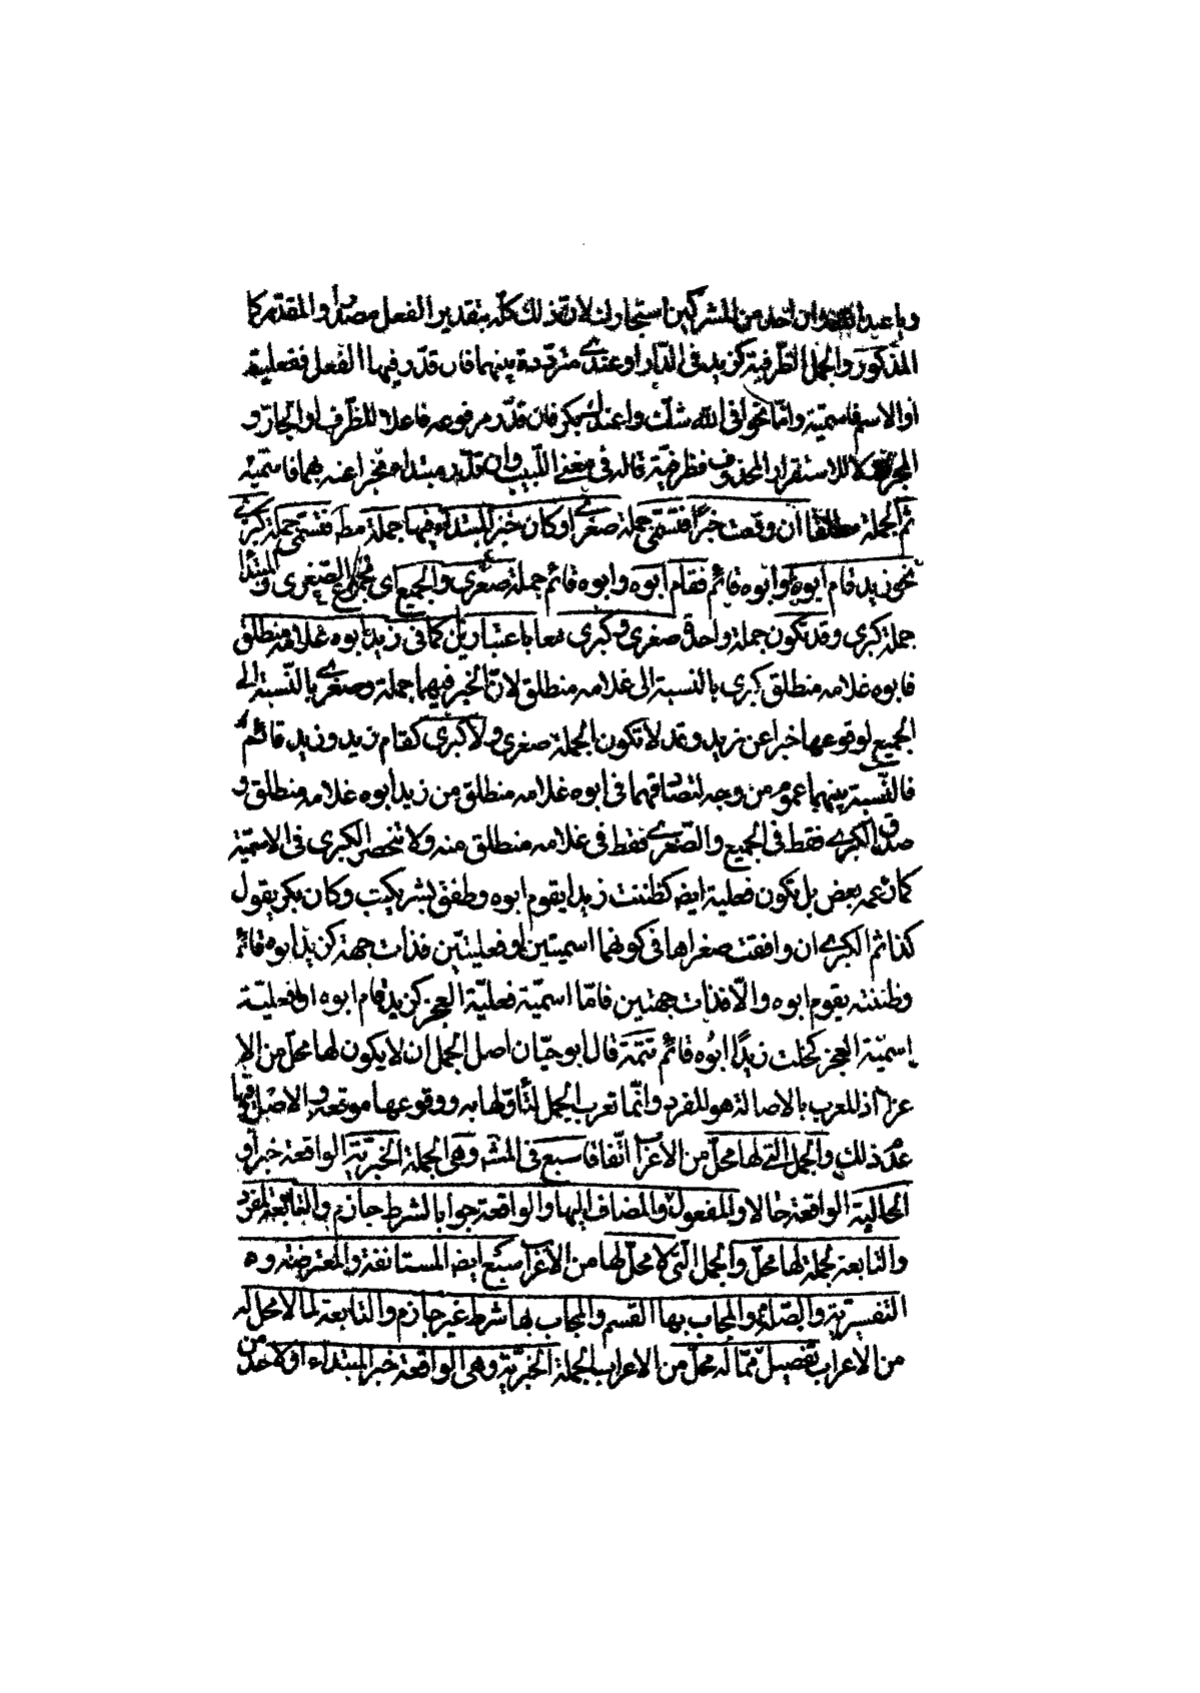 ويا عبد الله وان احد من المشركين استجارك لان ذلك كله بتقدير الفعل مصدرا والمقدر كا
المذكور والجمل الظرفية كزيد فى الدار او عندى مترددة بينهما فان قدر فيها الفعل ففعلية
او الاسم فاسمية واما نحو افى الله شك واعندك بكر فان قدر مرفوعه فاعلا للظرف او الجار و
المجرور لا للاستقرار المحذوف فظرفية قاله فى مغنى اللبيب وان قدر مبتداء مخبرا عنه بهما فاسمية
ثم الجملة مطلقا ان وقعت خبرا فتسمى جملة صغرى او كان خبر المبتداء فيها جملة مط فتسمى جملة كبرى
نحو زيد قام ابوه وابوه قائم فقام ابوه وابوه قائم جملة صغرى والجميع اى مجموع الصغرى والمبتدا
جملة كبرى وقد تكون جملة واحدة صغرى وكبرى معا باعتبارين كما فى زيد ابوه غلامه منطلق
فابوه غلامه منطلق كبرى بالنسبة الى غلامه منطلق لان الخبر فيهما جملة وصغرى بالنسبة الى
الجميع لوقوعها خبرا عن زيد وقد لا تكون الجملة صغرى ولا كبرى كقام زيد وزيد قائم
فالنسبة بينهما عموم من وجه لتصادقهما فى ابوه غلامه منطلق من زيد ابوه غلامه منطلق و
صدق الكبرى فقط فى الجميع والصغرى فقط فى غلامه منطلق منه ولا تنحصر الكبرى فى الاسمية
كما زعمه بعض بل تكون فعلية ايض كظننت زيدا يقوم ابوه وطفق بشر يكتب وكان بكر يقول
كذا ثم الكبرى ان وافقت صغراها فى كونهما اسميتين او فعليتين فذات جهة كزيد ابوه قائم
وظننته يقوم ابوه والا فذات جهتين فاما اسمية فعلية العجز كزيد قام ابوه او فعلية
اسمية العجز كخلت زيدًا ابوُه قائم تتمة قال ابو حيان اصل الجمل ان لا يكون لها محل من الا
عراب اذ المعرب بالاصالة هو المفرد وانما تعرب الجمل لتأولها به ووقوعها موقعه والاصل فيها
عدم ذلك والجمل التى لها محل من الاعراب اتفاقا سبع فى المش وهى الجملة الخبرية الواقعة خبرا و
الحالية الواقعة حالا والمفعول والمضاف اليها والواقعة جوابا لشرط جازم والتابعة لمفرد
والتابعة لجملة لها محل والجمل التى لا محل لها من الاعراب سبع ايض المستانفة والمعترضة و
التفسيرية والصلة والمجاب بها القسم والمجاب بها شرط غير جازم والتابعة لما لا محل له
من الاعراب تفصيل مما له محل من الاعراب الجملة الخبرية وهى الواقعة خبر المبتداء او لاحد من